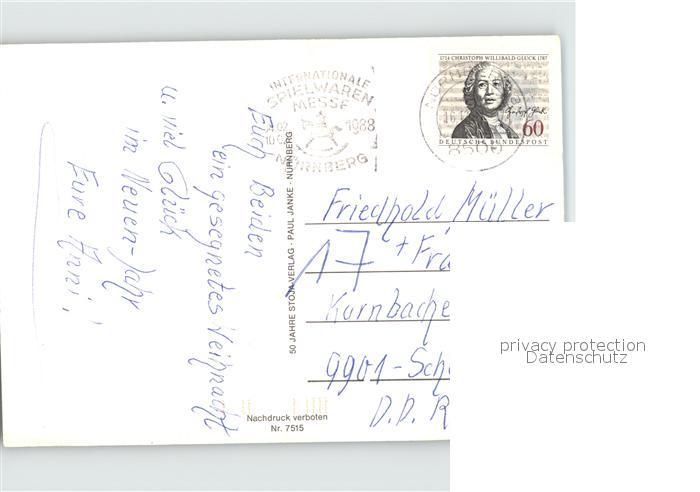 Euch Beiden
ein gesegnetes Weihnacht
u. viel Glück
im Neuen-Jahr
Eure Anni!
INTERNATIONALE
SPIELWAREN
MESSE
1988
NÜRNBERG
1714 CHRISTOPH WILLIBALD GLUCK 1787
60
DEUTSCHE BUNDESPOST
8500
50 JAHRE STOJA-VERLAG · PAUL JANKE · NÜRNBERG
Friedhold Müller
17 + Fra
Kürnbache
9901-Sch
D.D.R
Nachdruck verboten
Nr. 7515
privacy protection
Datenschutz